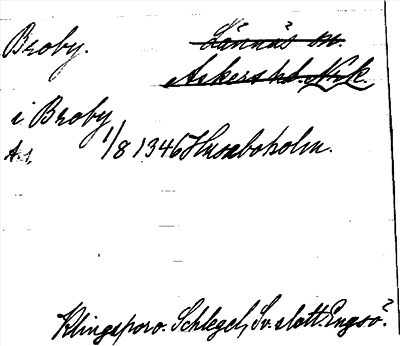 Broby.
Lännäs sn.
Askers hd. Nrk.
i Broby
As 1/8 1346 Husaboholm.
Klingspor o. Schlegel, Sv. slott. Engsö?